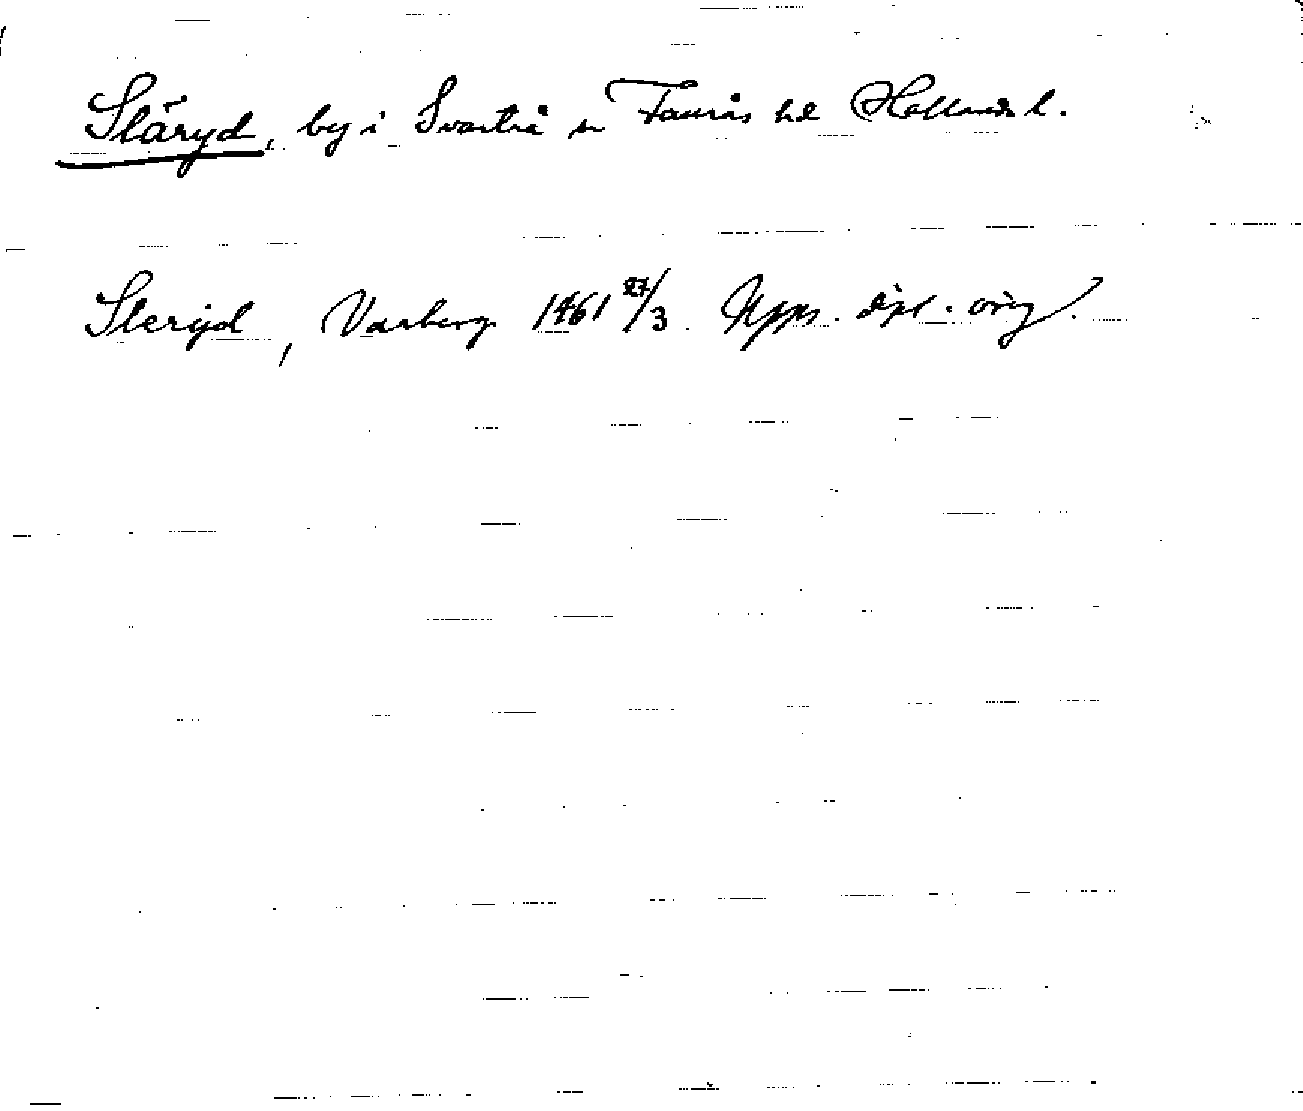 Släryd, by i Svartrå sn Faurås hd Hallands l.
Sleryd, Varberg 1461 27/3. Upps. dipl. orig.